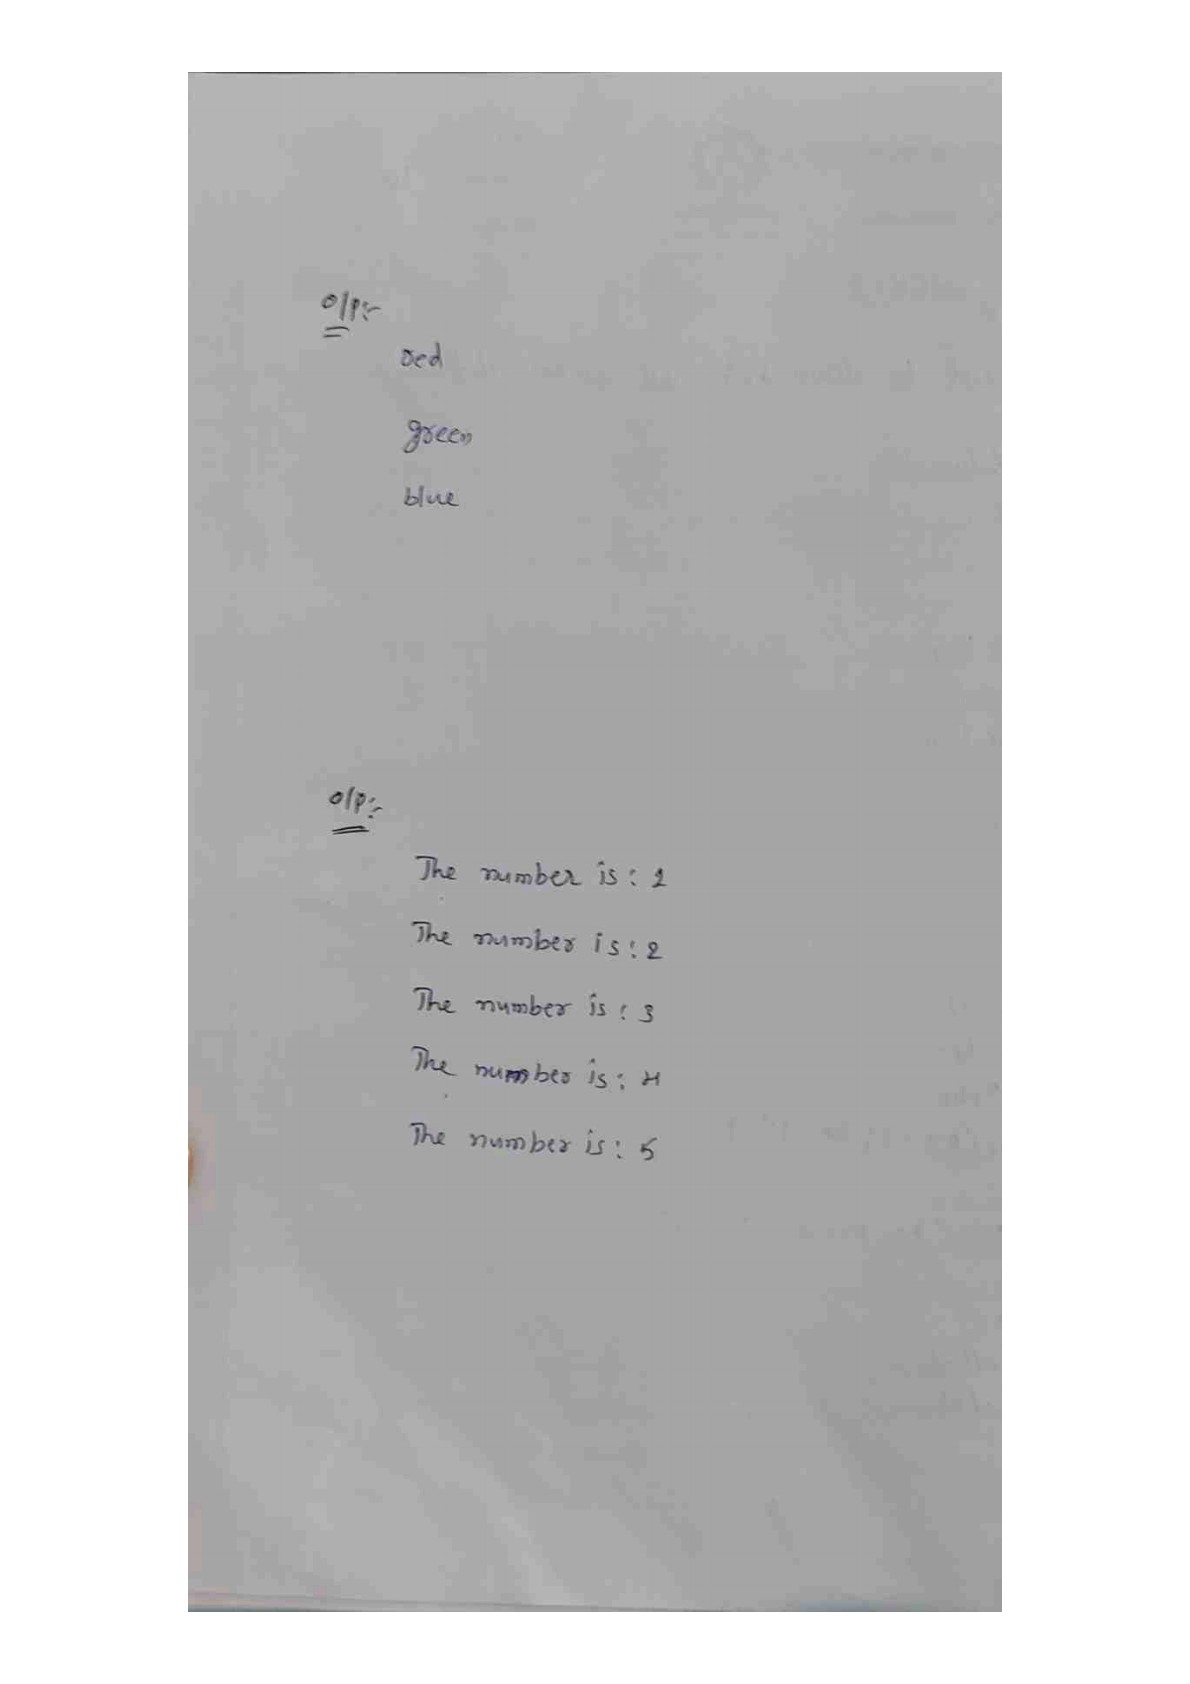 O/P:-
red
green
blue
O/P:-
The number is: 1
The number is: 2
The number is: 3
The number is: 4
The number is: 5